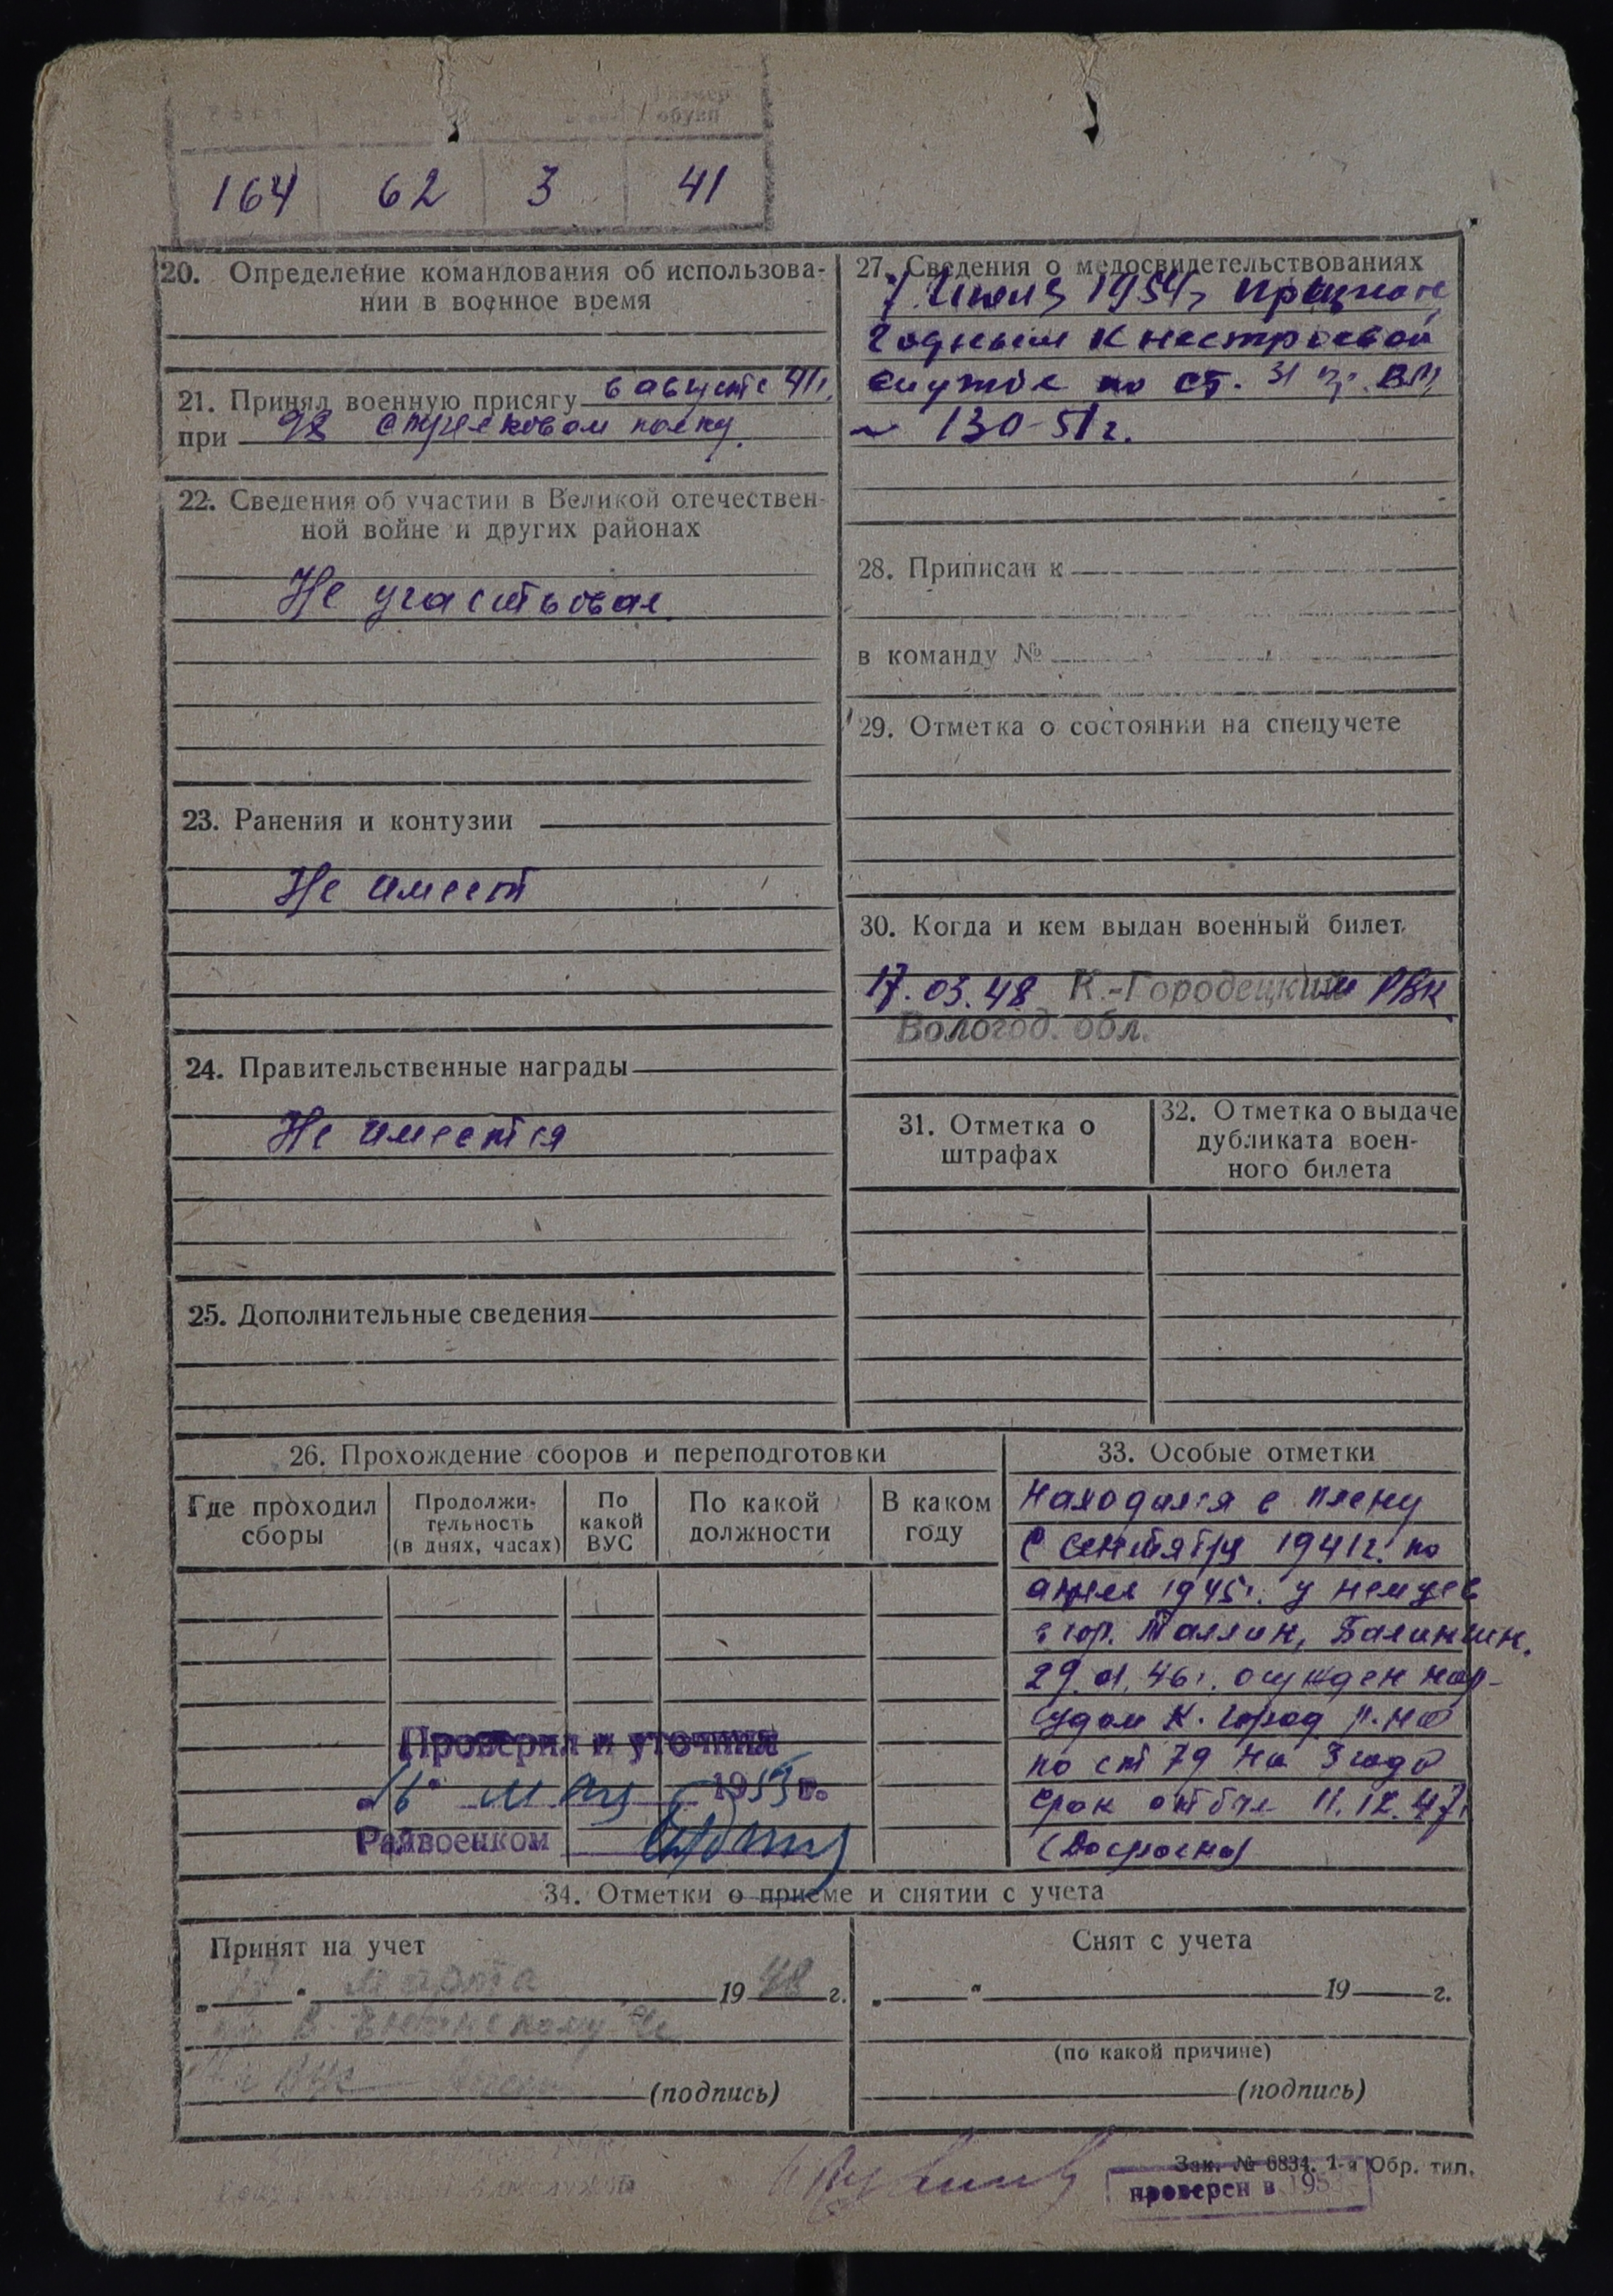 размер
обуви
164 62 3 41
20. Определение командования об использова-
нии в военное время
21. Принял военную присягу в августе 41г.
при 98 стрелковом полку.
22. Сведения об участии в Великой отечествен-
ной войне и других районах
Не участвовал.
23. Ранения и контузии
Не имеет
24. Правительственные награды
Не имеется
25. Дополнительные сведения
27. Сведения о медосвидетельствованиях
7 1954г признан
годным к нестроевой
службе по ст. 31
130-51г.
28. Приписан к
в команду №
29. Отметка о состоянии на спецучете
30. Когда и кем выдан военный билет
17.03.48 К.-Городецким РВК
Вологод. обл.
31. Отметка о
штрафах
32. Отметка о выдаче
дубликата воен-
ного билета
26. Прохождение сборов и переподготовки
Где проходил
сборы
Продолжи-
тельность
(в днях, часах)
По
какой
ВУС
По какой
должности
В каком
году
Проверил и уточнил
16 мая 1953 г.
Райвоенком
33. Особые отметки
Находился в плену
с сентября 1941г. по
апрель 1945г. у немцев
в гор. Таллин,
29.01.46г. осужден нар-
судом К. Город р-на
по ст 79 на 3 года
срок отбыл 11.12.47г
(Досрочно)
34. Отметки о приеме и снятии с учета
Принят на учет
„ 17 “ марта 1948 г.
(подпись)
Снят с учета
„ “ 19 г.
(по какой причине)
(подпись)
Зак. № 6834. 1-я Обр. тип.
проверен в 195